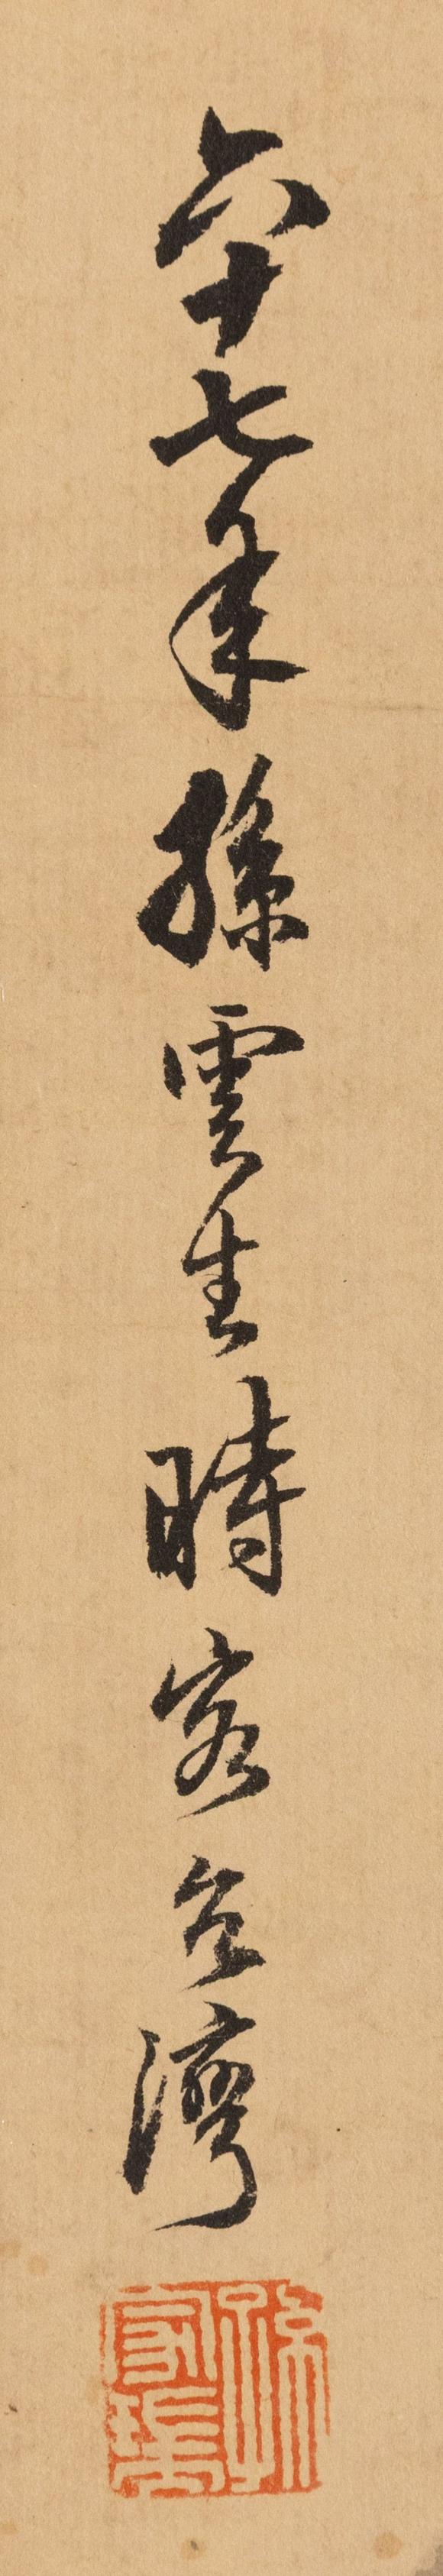 六十七年孫雲生時客台灣
孫家瑞